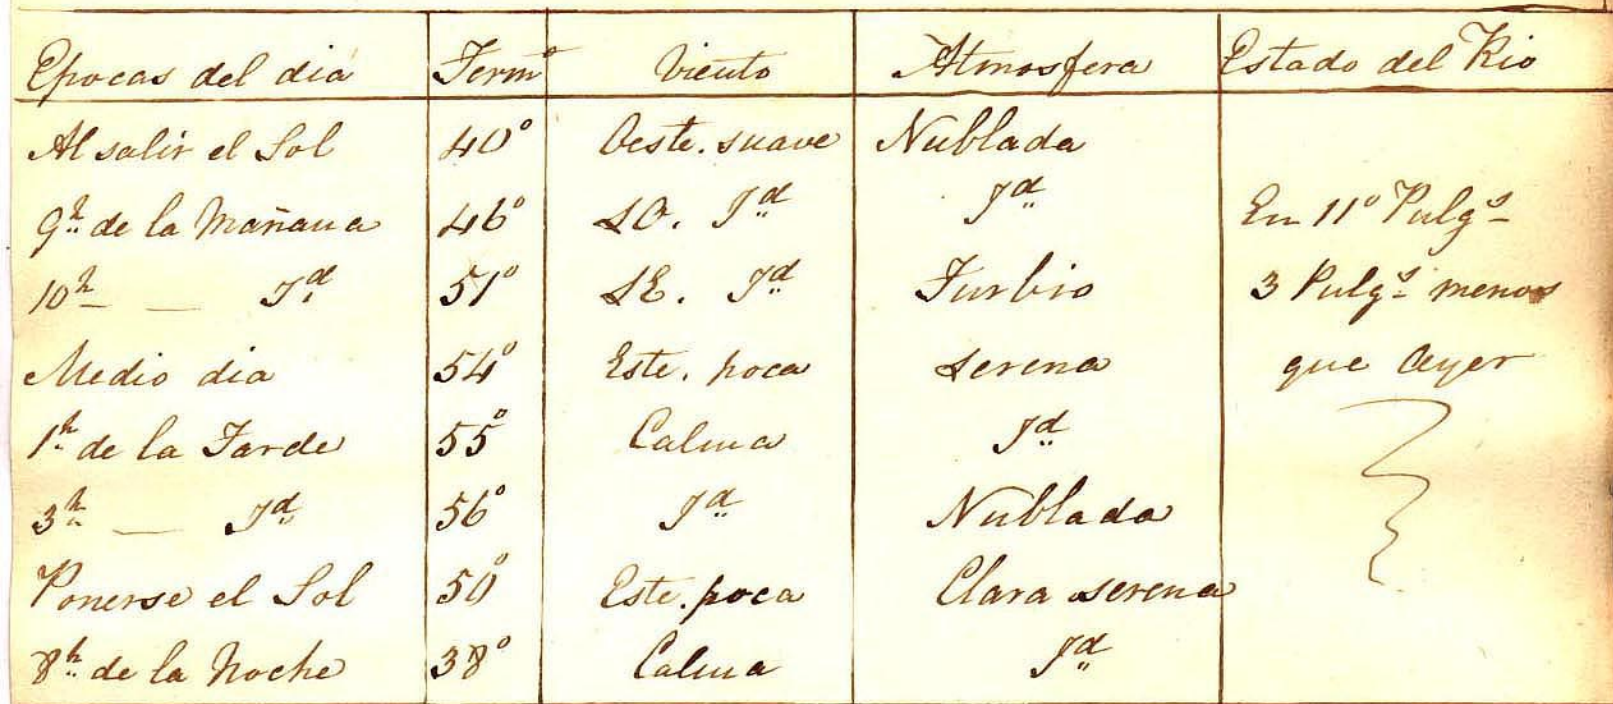 Epocas del dia Termº Viento Atmosfera Estado del Rio
Al salir el Sol 40° Oeste. suave Nublada
9h de la Mañana 46° SO. Id Id En 11° Pulgs
10h — Id 51° SE. Id Turbio 3 Pulgs menos
Medio dia 54° Este. poca Serena que Ayer
1h de la Tarde 55° Calma Id
3h — Id 56° Id Nublada
Ponerse el Sol 50° Este. poca Clara serena
8h de la Noche 38° Calma Id